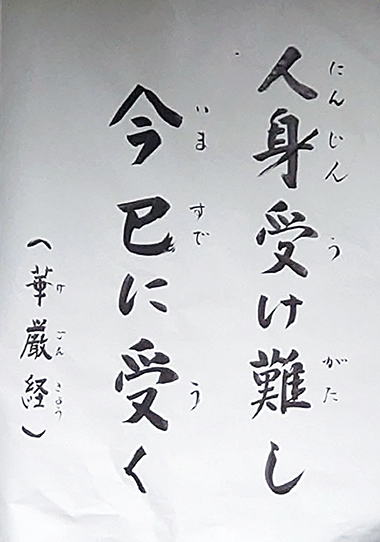 人身受け難し
にんじん う がた
今巳に受く
いま すで う
(華厳経)
け ごん きょう